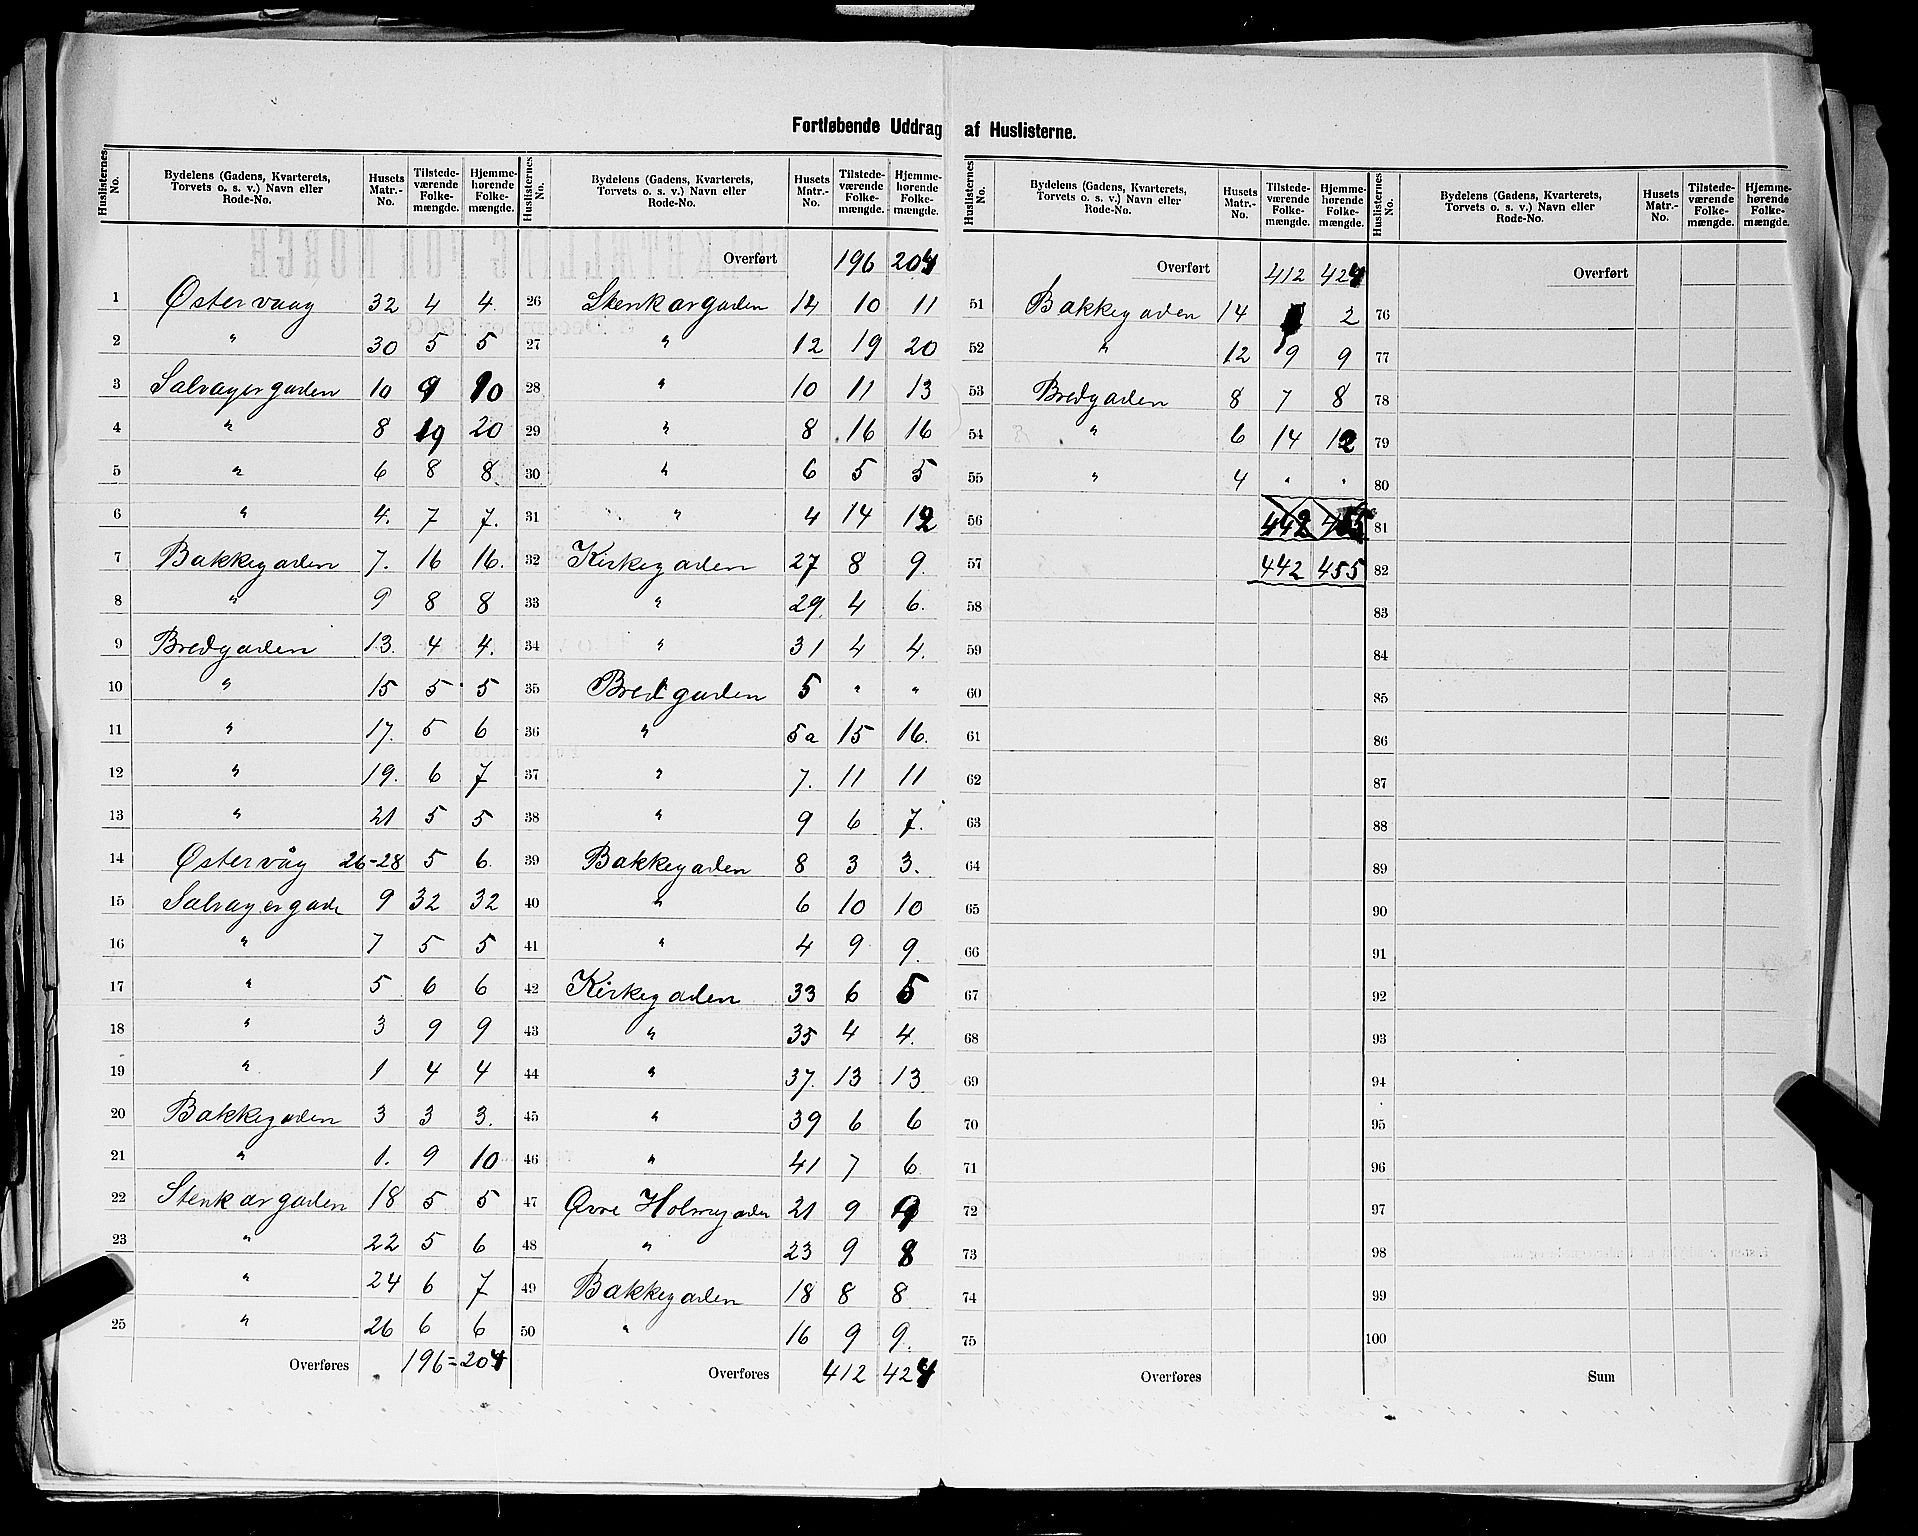 Fortløbende Uddrag af Huslisterne.
Huslisternes No. | Bydelens (Gadens, Kvarterets, Torvets o. s. v.) Navn eller Rode-No. | Husets Matr.-No. | Tilstede-værende Folke-mængde. | Hjemme-hørende Folke-mængde.
1 Østervaag 32 4 4
2 " 30 5 5
3 Salvagergaden 10 9 10
4 " 8 19 20
5 " 6 8 8
6 " 4. 7 7.
7 Bakkegaden 7. 16 16.
8 " 9 8 8
9 Bredgaden 13. 4 4.
10 " 15 5 5
11 " 17. 5 6
12 " 19. 6 7
13 " 21 5 5
14 Østervåg 26-28 5 6.
15 Salvagergade 9 32 32
16 " 7 5 5
17 " 5 6 6
18 " 3 9 9
19 " 1 4 4
20 Bakkegaden 3 3 3.
21 " 1. 9 10
22 Stenkargaden 18 5 5
23 " 22 5 6
" 24 6 7
25 " 26 6 6
Overføres 196 = 204
Huslisternes No. | Bydelens (Gadens, Kvarterets, Torvets o. s. v.) Navn eller Rode-No. | Husets Matr.-No. | Tilstede-værende Folke-mængde. | Hjemme-hørende Folke-mængde.
Overført 196 204
26 Stenkargaden 14 10 11
27 " 12 19 20
28 " 10 11 13
29 " 8 16 16
30 " 6 5 5
31 " 4 14 12
32 Kirkegaden 27 8 9.
33 " 29. 4 6.
34 " 31 4 4.
35 Bredgaden 5 " "
36 " 5a 15 16.
37 " 7. 11 11
38 " 9 6 7.
39 Bakkegaden 8 3 3.
40 " 6 10 10
41 " 4 9 9.
42 Kirkegaden 33 6 5
43 " 35 4 4.
44 " 37. 13 13
45 " 39 6 6
46 " 41 7 6
47 Øvre Holmegaden 21 9 9
48 " 23 9 8
49 Bakkegaden 18 8 8
50 " 16 9 9.
Overføres 412 424
Huslisternes No. | Bydelens (Gadens, Kvarterets, Torvets o. s. v.) Navn eller Rode-No. | Husets Matr.-No. | Tilstede-værende Folke-mængde. | Hjemme-hørende Folke-mængde.
Overført 412 424
51 Bakkegaden 14 2
52 " 12 9 9
53 Bredgaden 8 7 8
54 " 6 14 12
55 " 4 " "
56 442 455
57 442 455
58
59
60
61
62
63
64
65
66
67
68
69
70
71
72
73
74
75
Overføres
Huslisternes No. | Bydelens (Gadens, Kvarterets, Torvets o. s. v.) Navn eller Rode-No. | Husets Matr.-No. | Tilstede-værende Folke-mængde. | Hjemme-hørende Folke-mængde.
Overført
76
77
78
79
80
81
82
83
84
85
86
87
88
89
90
91
92
93
94
95
96
97
98
99
100
Sum